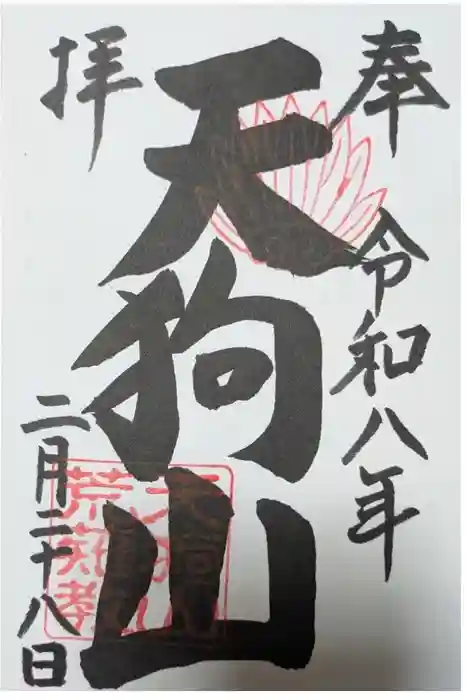 奉
令和八年
天狗山
拝
二月二十八日